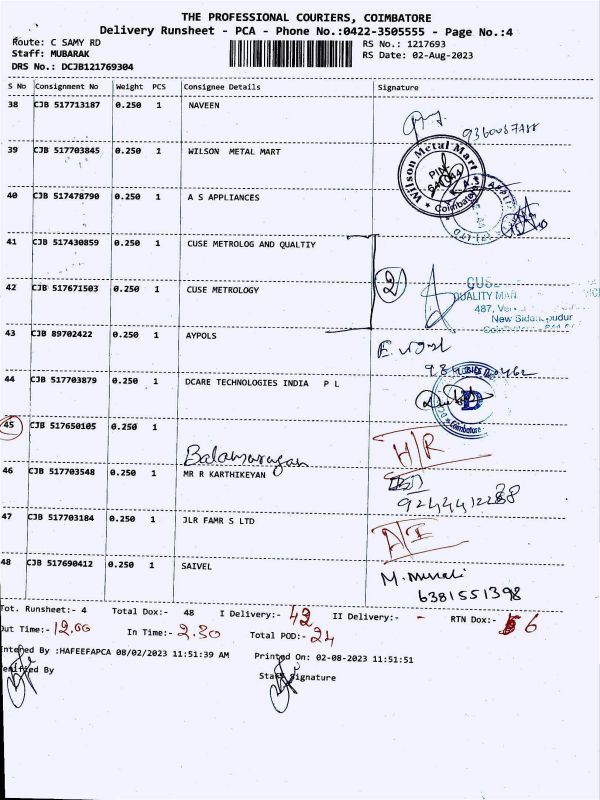 THE PROFESSIONAL COURIERS, COIMBATORE
Delivery Runsheet - PCA - Phone No.:0422-3505555 - Page No.:4
Route: C SAMY RD
RS No.: 1217693
Staff: MUBARAK
RS Date: 02-Aug-2023
DRS No.: DCJB121769304
S No Consignment No Weight PCS Consignee Details Signature
38 CJB 517713187 0.250 1 NAVEEN
39 CJB 517703845 0.250 1 WILSON METAL MART
Wilson Metal Mart
PIN
Coimbatore
40 CJB 517478790 0.250 1 A S APPLIANCES
41 CJB 517430859 0.250 1 CUSE METROLOG AND QUALTIY
2
42 CJB 517671503 0.250 1 CUSE METROLOGY
487,
43 CJB 89702422 0.250 1 AYPOLS
44 CJB 517703879 0.250 1 DCARE TECHNOLOGIES INDIA P L
D
Coimbatore
45 CJB 517650105 0.250 1 Balamurugan
H/R
46 CJB 517703548 0.250 1 MR R KARTHIKEYAN
47 CJB 517703184 0.250 1 JLR FAMR S LTD
A/I
48 CJB 517690412 0.250 1 SAIVEL
M. Murali
6381551398
Tot. Runsheet:- 4 Total Dox:- 48 I Delivery:- 42 II Delivery:- - RTN Dox:- 6
Out Time:- 12.00 In Time:- 2.30 Total POD:- 24
Entered By :HAFEEFAPCA 08/02/2023 11:51:39 AM Printed On: 02-08-2023 11:51:51
Verified By Staff Signature